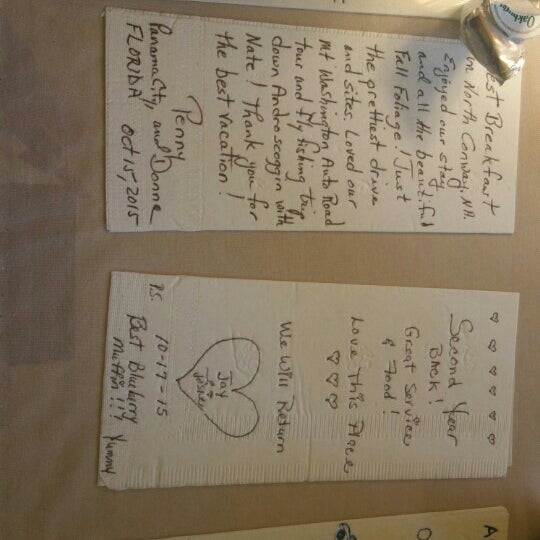 Best Breakfast
in North Conway, N.H.
Enjoyed our stay
and all the beautiful
Fall Foliage! Just
the prettiest drive
and sites. Loved our
Mt Washington Auto Road
tour and fly fishing trip
down Androscoggin with
Nate! Thank you for
the best vacation!
Penny
and Donna
Panama City,
FLORIDA Oct 15, 2015
Second Year
Back!
Great Service
& Food!
Love This Place
We Will Return
Jay
&
10-17-15
P.S. Best Blueberry
Muffin!!! Yummy